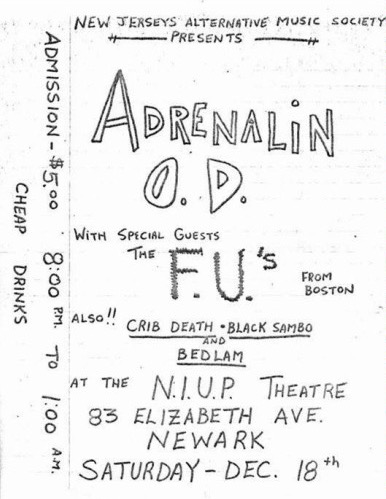 NEW JERSEYS ALTERNATIVE MUSIC SOCIETY
PRESENTS
ADRENALIN
O.D.
WITH SPECIAL GUESTS
THE F.U.'s FROM
BOSTON
ALSO!! CRIB DEATH • BLACK SAMBO
AND
BEDLAM
AT THE N.I.U.P. THEATRE
83 ELIZABETH AVE.
NEWARK
SATURDAY - DEC. 18th
ADMISSION - $5.00 8:00 P.M. TO 1:00 A.M.
CHEAP DRINKS